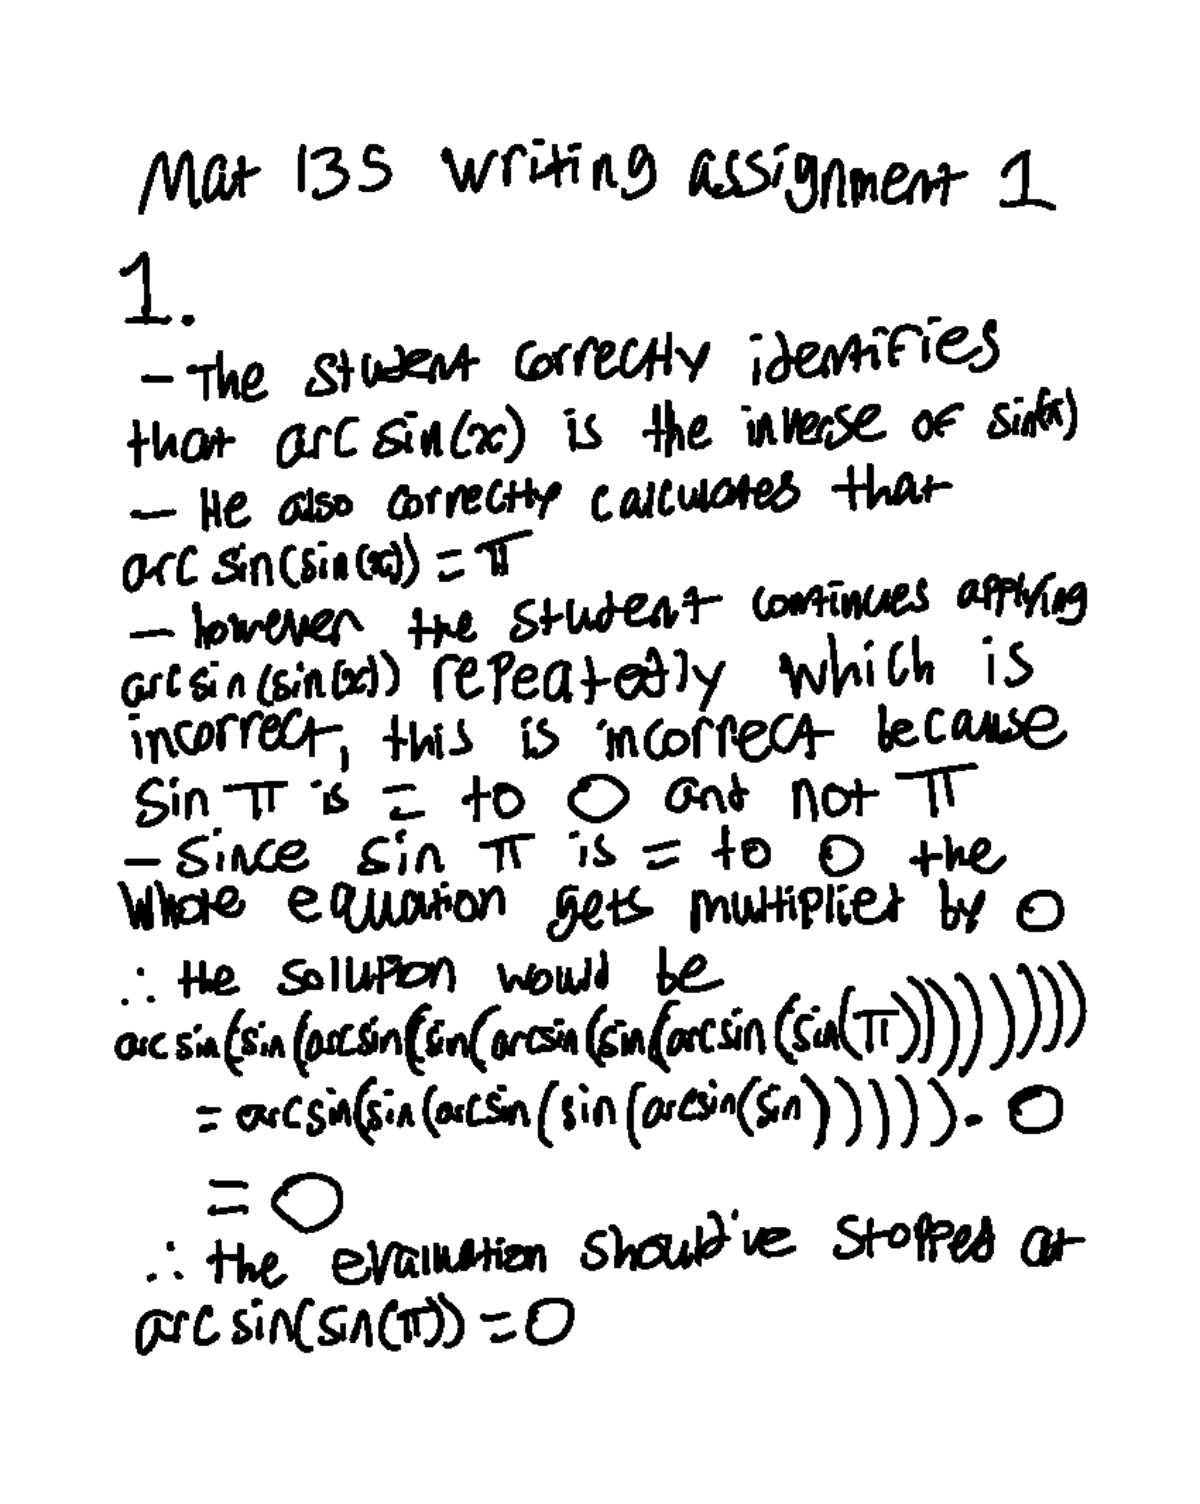 Mat 135 writing assignment 1
1.
- The student correctly identifies
that arcsin(x) is the inverse of sin(x)
- He also correctly calculates that
arcsin(sin(x)) = π
- however the student continues applying
arcsin(sin(x)) repeatedly which is
incorrect, this is incorrect because
Sin π is = to 0 and not π
- Since sin π is = to 0 the
Whole equation gets multiplied by 0
∴ the solution would be
arcsin(sin(arcsin(sin(arcsin(sin(arcsin(sin(π))))))))
= arcsin(sin(arcsin(sin(arcsin(sin)))))). 0
= 0
∴ the evaluation should've stopped at
arcsin(sin(π)) = 0